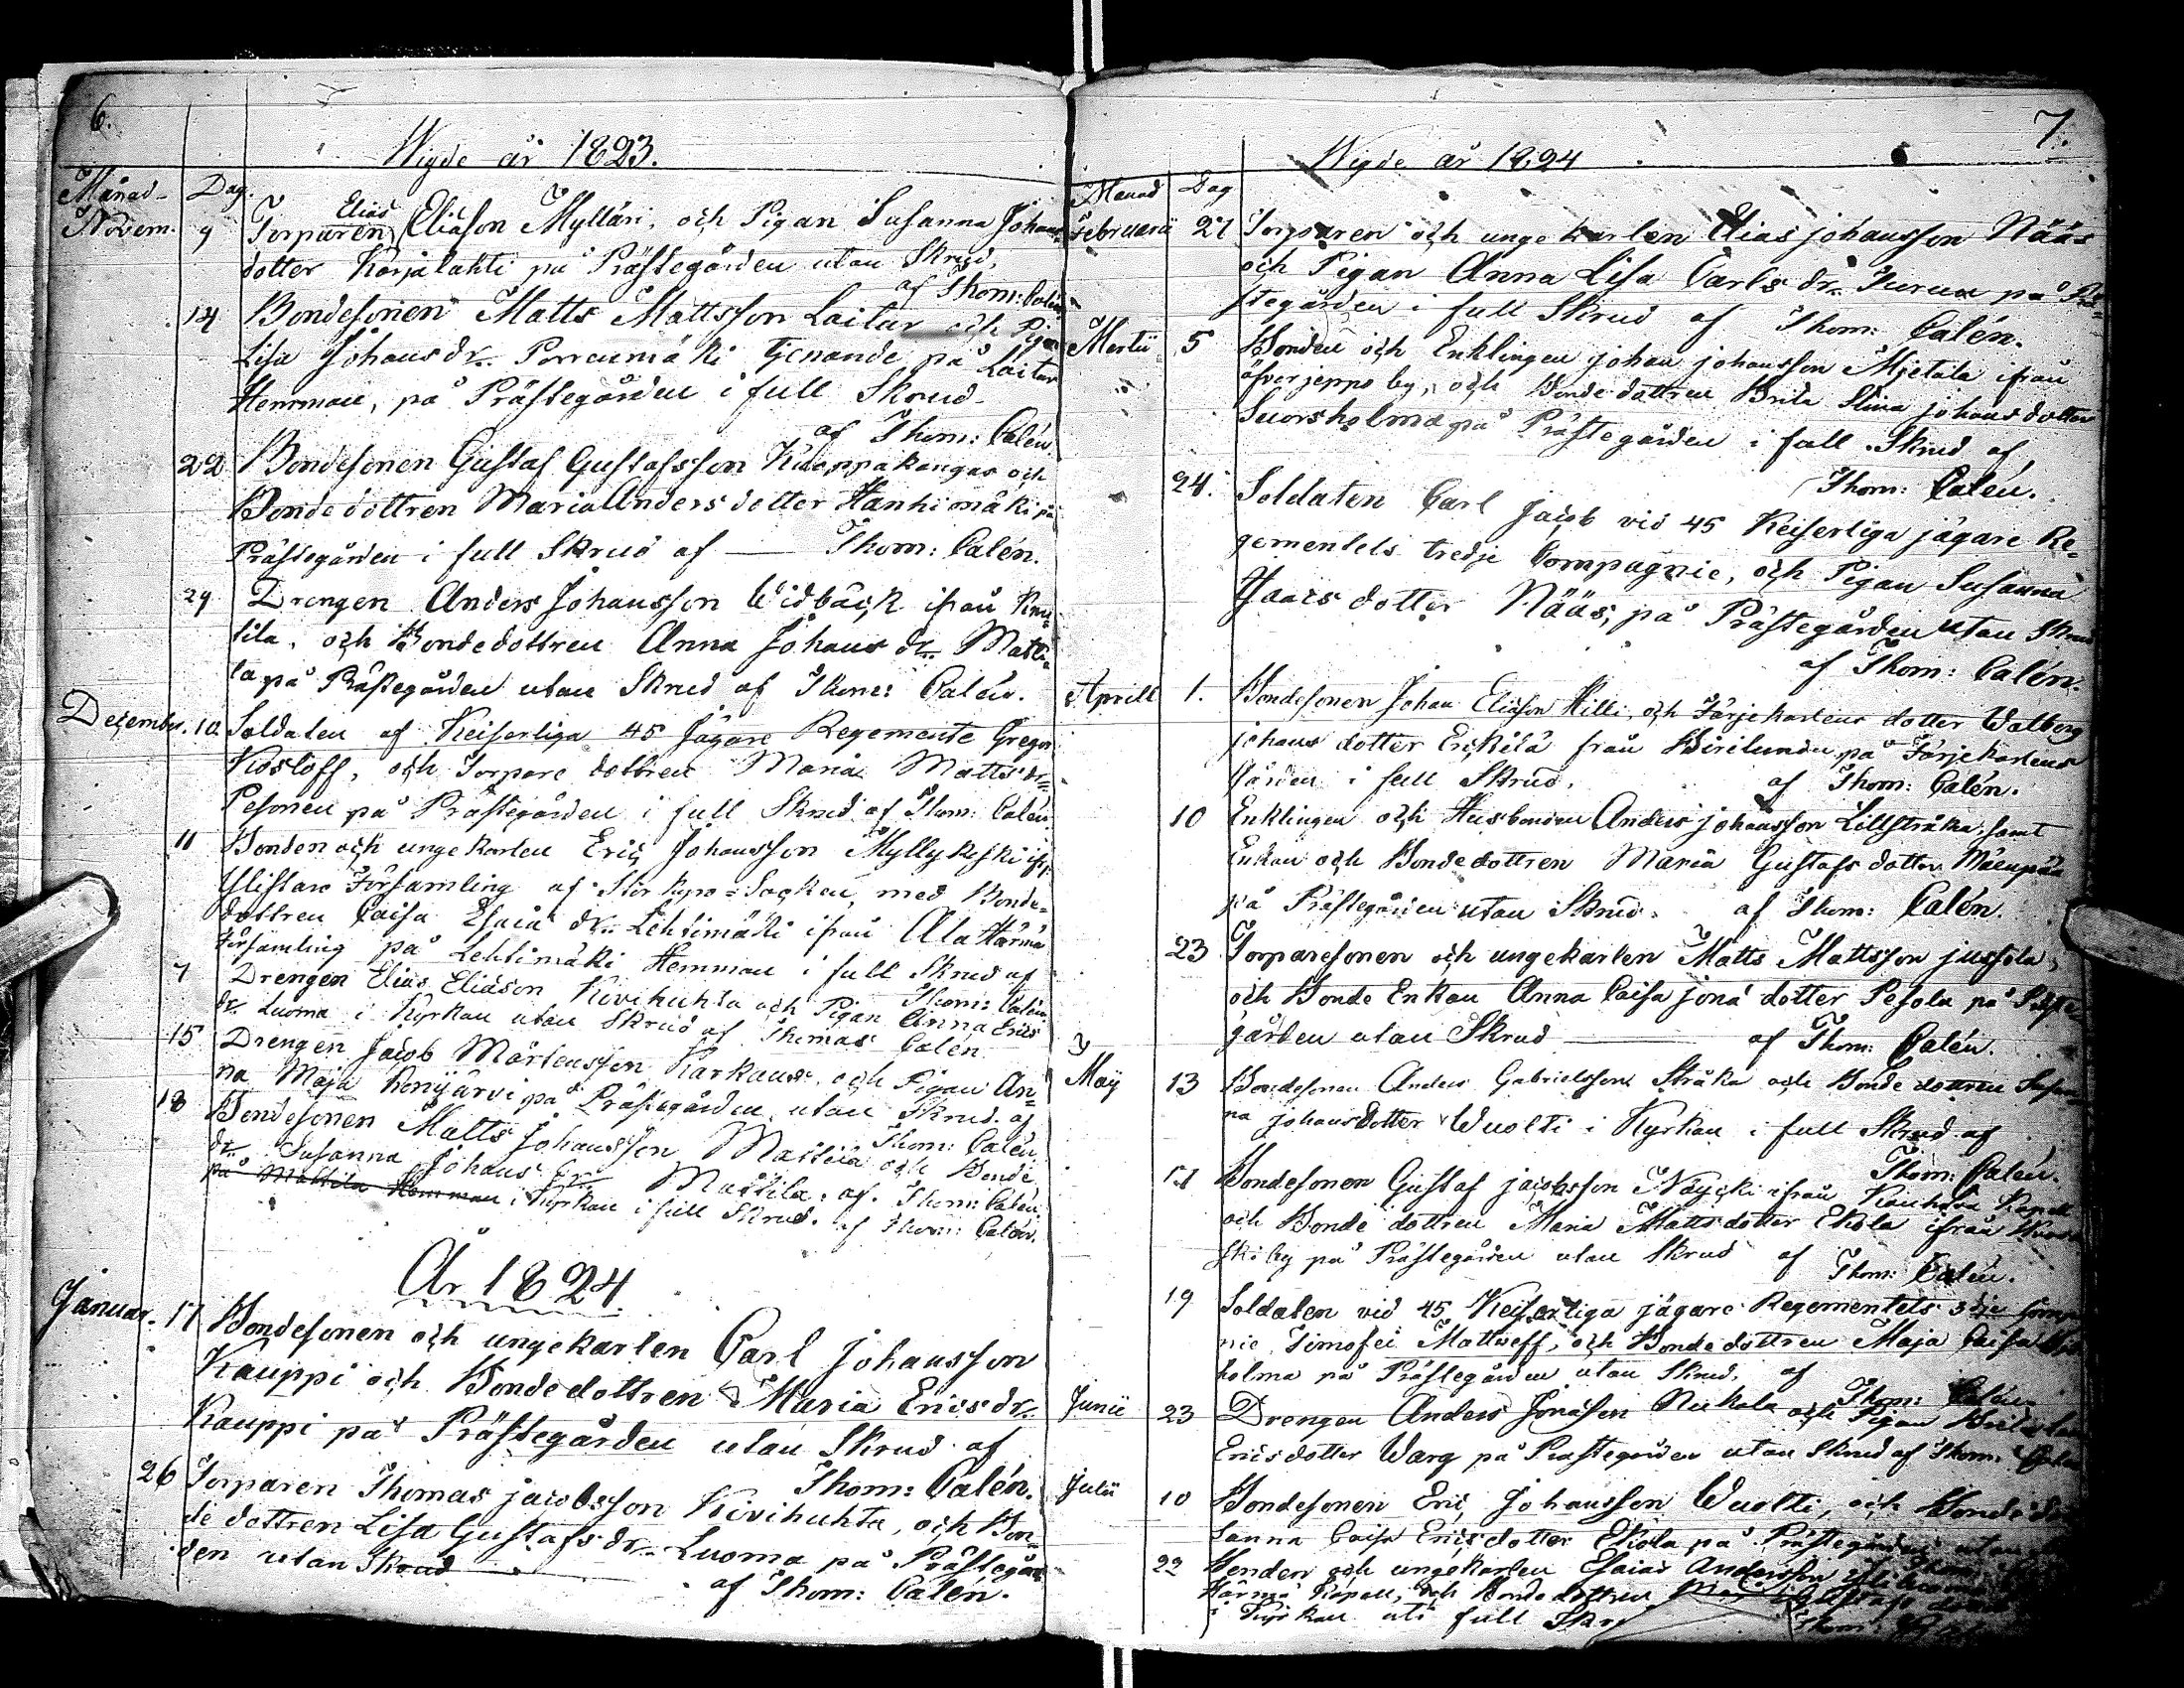 6.
Wigde år 1823.
Månad Dag.
Novem. 9 Torparen Elias Eliæson Mylläri, och Pigan Susanna Johans
dotter Karjalahti på Prästegården utan Skrud,
af Thom: Calén
14 Bondesonen Matts Mattsson Laitur och Pigan
Lisa Johansdr. Porrenmäki tjenande på Laitur
Hemman, på Prästegården i full Skrud
af Thom: Calén
22 Bondesonen Gustaf Gustafsson Knappakangas och
Bondedottren Maria Anders dotter Hanhimäki på
Prästegården i full Skrud af Thom: Calén.
29 Drengen Anders Johansson Widbäck ifrån
och Bondedottren Anna Johans dr. Matti
la på Prästegården utan Skrud af Thom: Calén.
Decembr. 10. Soldaten af Keiserliga 45 Jägare Regemente Gregori
Kosloff, och Torpare dottren Maria Matts dr
Pesonen på Prästegården i full Skrud af Thom: Calén
11 Bonden och ungekarlen Eric Johansson Myllykoski ifr.
Ylistaro Församling af Storkyro Socken, med Bonde=
dottren Caisa Esaia dr. Lehtimäki ifrån Ala Härmä
Församling på Lehtimäki Hemman i full Skrud af
Thom: Calén
7 Drengen Elias Eliason Kivihuhta och Pigan Anna Erics
dr. Luoma i Kyrkan utan Skrud af Thomas Calén
15 Drengen Jacob Mårtensson Karkaus och Pigan An=
na Maja Kenijärvi på Prästegården utan Skrud. af
Thom: Calén
18 Bondesonen Matts Johansson Mattila och Bonde
dr. Susanna Johans dr Mattila. af Thom: Calén
på Mattila Hemman i Kyrkan i full Skrud. af Thom: Calén.
År 1824
Januar. 17 Bondesonen och ungekarlen Carl Johansson
Kauppi och Bondedottren Maria Ericsdr.
Kauppi på Prästegården utan Skrud af
Thom: Calén.
26 Torparen Thomas Jacobsson Kivihuhta, och Bon=
de dottren Lisa Gustafs dr. Luoma på Prästegår
den utan Skrud
af Thom: Calén.
7.
Wigde år 1824
Månad Dag
Februarii 27 Torparen och ungekarlen Elias Johansson Nääs
och Pigan Anna Lisa Carls dr. på Prä=
stegården i full Skrud af Thom: Calén.
Martii 5 Bonden och Enklingen Johan Johansson Mjetala ifrån
öfverjeppo by, och Bondedottren Brita Stina Johansdotter
Suorsholma på Prästegården i full Skrud af
Thom: Calén.
24. Soldaten Carl Jacob vid 45 Keiserliga jägare Re=
gementets tredje Compagnie, och Pigan Susanna
Isaacs dotter Nääs, på Prästegården utan Skrud
af Thom: Calén.
Aprill 1. Bondesonen Johan Eliæson Hilli, och Färjekarlens dotter Walborg
Johans dotter Erikilä från Birilunda på Färjekarlens
Gården i full Skrud. af Thom: Calén.
10 Enklingen och Husbonden Anders Johansson Lillstråka, samt
Enkan och Bondedottren Maria Gustafs dotter Mäenpää
på Prästegården utan Skrud. af Thom: Calén.
23 Torparesonen och ungekarlen Matts Mattsson Jussila,
och Bonde Enkan Anna Caisa Jona dotter Pesola på Präste
gården utan Skrud af Thom: Calén.
Maij 13 Bondesonen Anders Gabrielsson Stråka och Bonde dottren Susan=
na Johans dotter Wuolti i Kyrkan i full Skrud af
Thom: Calén.
17 Bondesonen Gustaf Jacobsson Näycki ifrån Kauhava Kapell
och Bonde dottren Maria Mattsdotter Ekola ifrån
ski by på Prästegården utan Skrud af
Thom: Calén.
19 Soldaten vid 45 Keiserliga jägare Regementets 3dje Comp
nie Timofei Mattweff, och Bonde dottren Maja Caisa
holma på Prästegården utan Skrud, af
Thom: Calén
Junii 23 Drengen Anders Jonason Niskala och Pigan
Ericsdotter Warg på Prästegården utan Skrud af Thom: Calén
Julii 10 Bondesonen Eric Johansson Wuolti, och Bonde
Sanna Caisa Erics dotter Ekola på Prästegården utan
22 Bonden och ungekarlen Esaias Andersson
Härmä Kapell, och Bonde dottren
i Kyrkan uti full Skr
Thom: